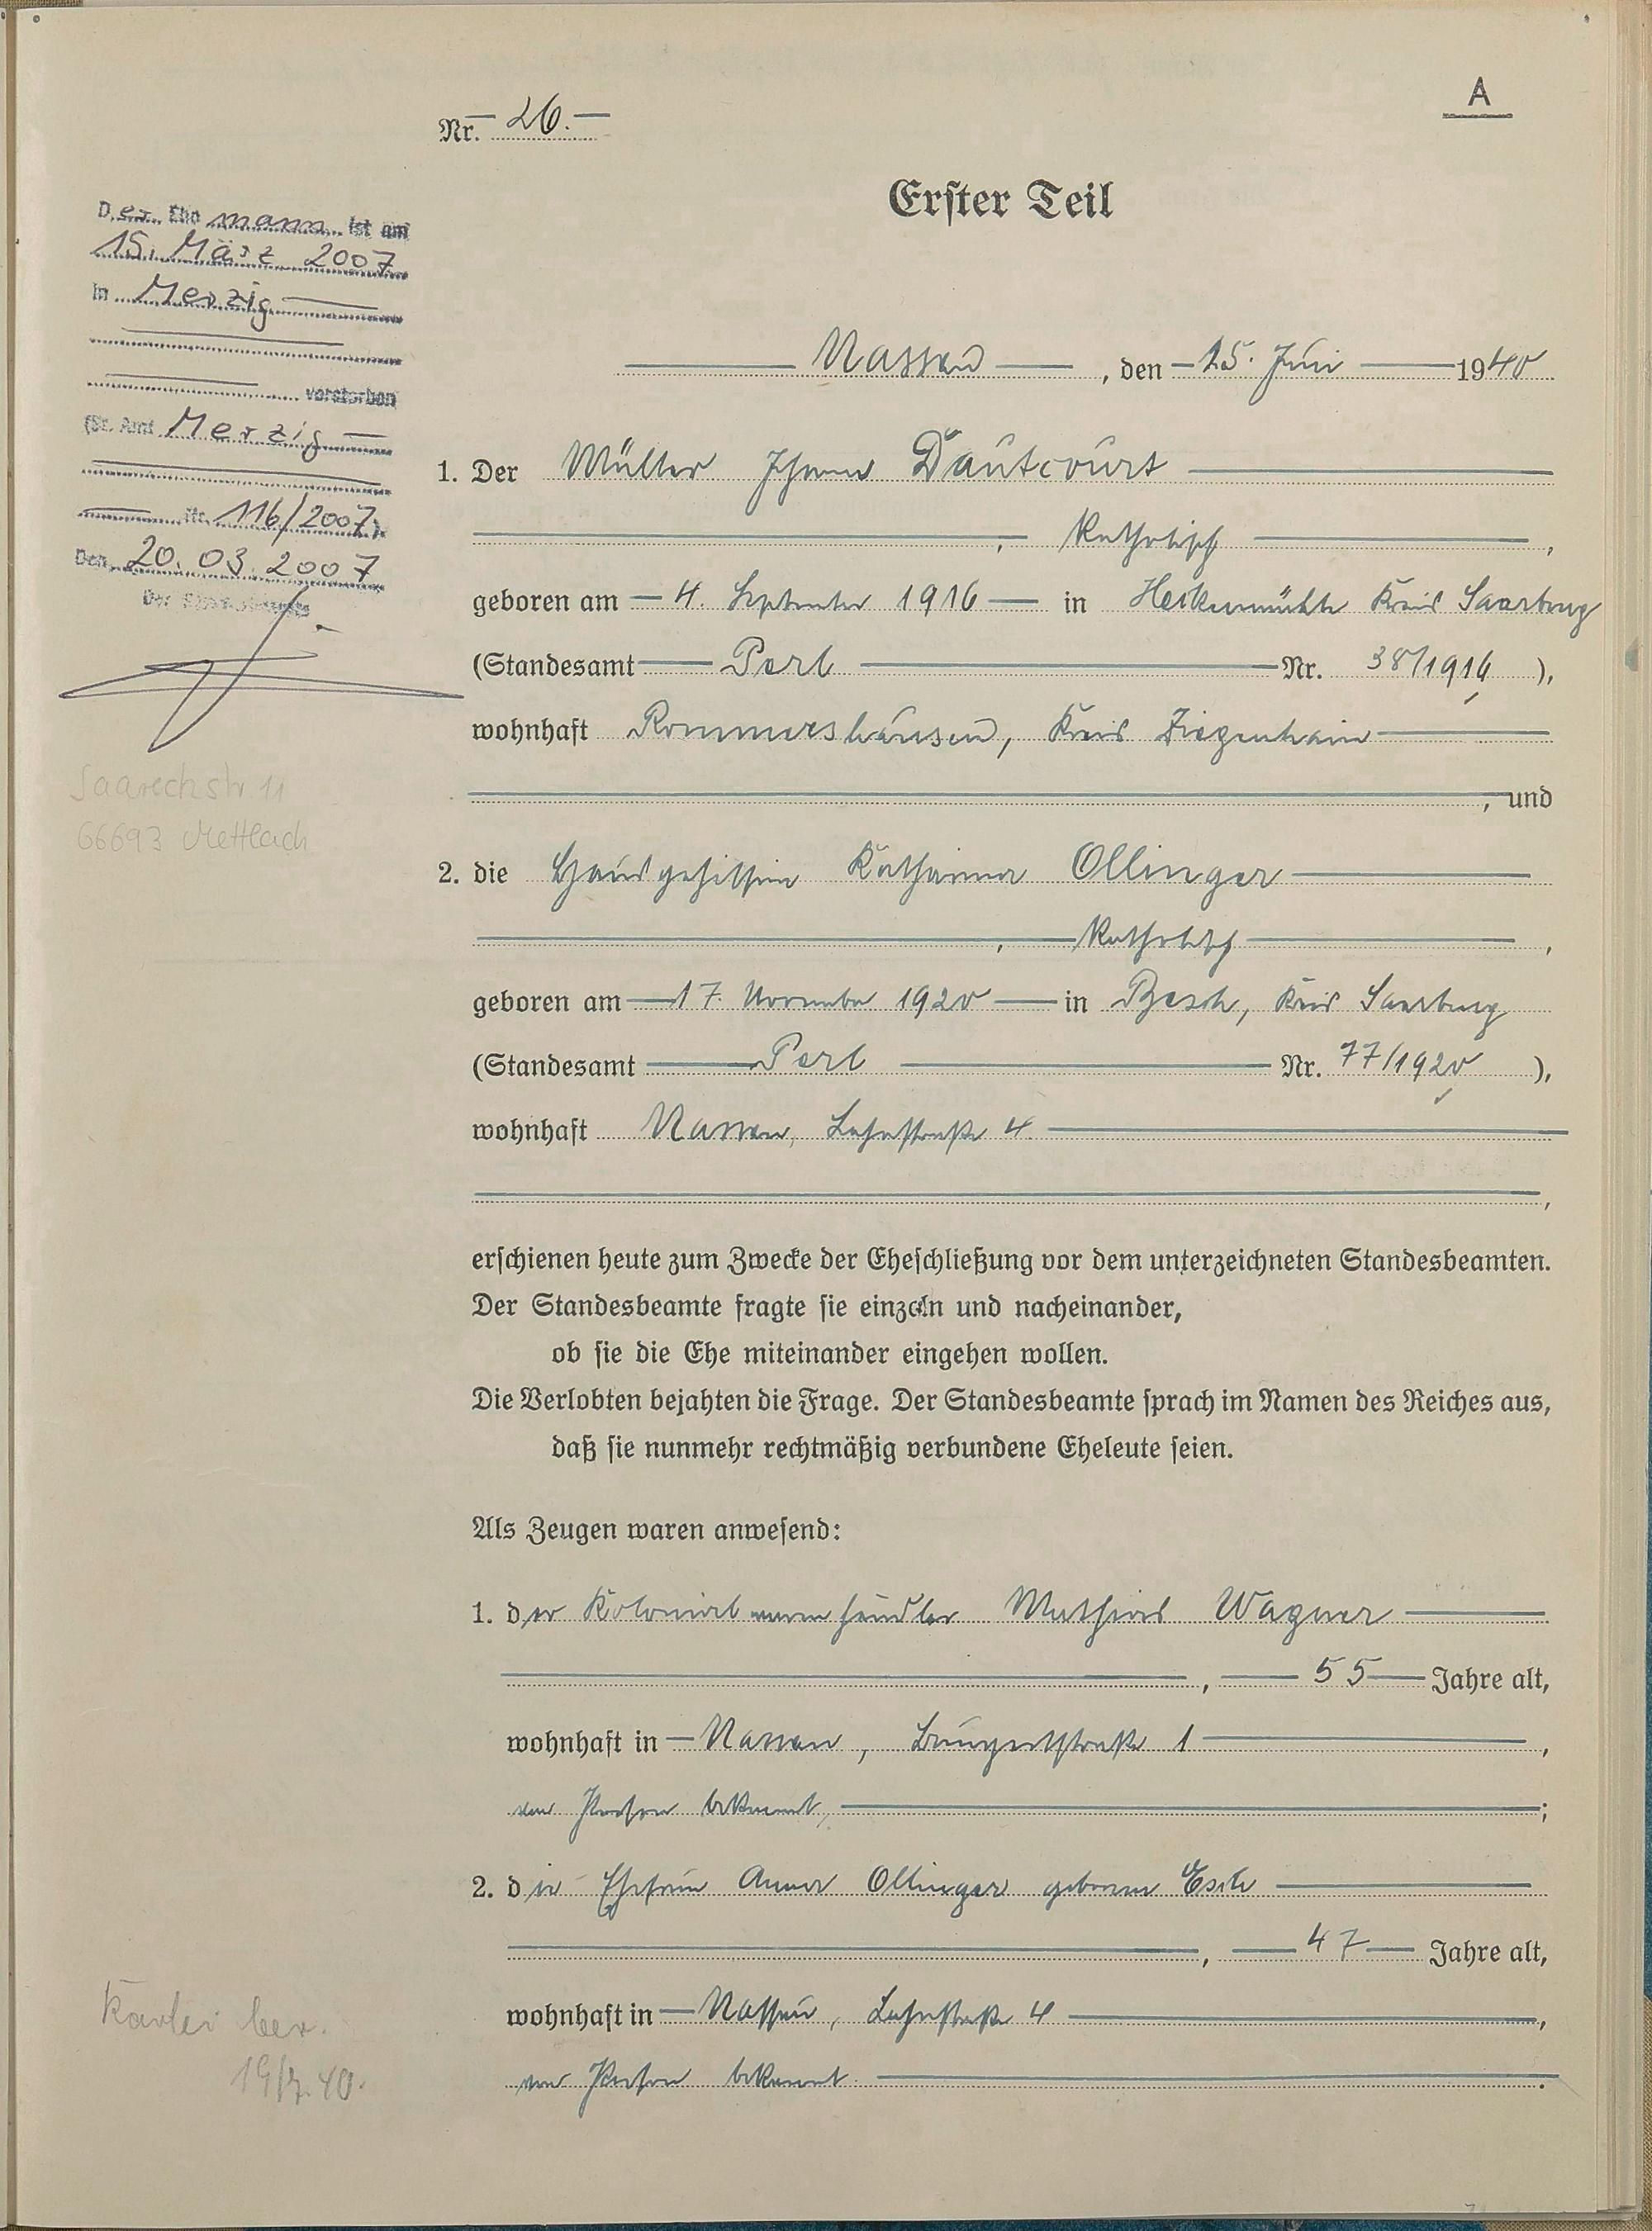 A
Nr. 26.
Erster Teil
Der Ehemann ist am
15. März 2007
in Merzig
verstorben
(St. Amt Merzig
Nr. 116/2007).
Den 20.03.2007
Der Standesbeamte
Saareckstr. 11
66693 Mettlach
Nassau, den 15. Juni 1940
1. Der Müller Johann Dautcourt
, katholisch,
geboren am 4. September 1916 in Kreis Saarburg
(Standesamt Perl Nr. 38/1916),
wohnhaft Rommershausen, Kreis Ziegenhain
, und
2. die Hausgehilfin Katharina Ollinger
, katholisch,
geboren am 17. November 1920 in Besch, Kreis Saarburg
(Standesamt Perl Nr. 77/1920),
wohnhaft Nassau, Lahnstraße 4
,
erschienen heute zum Zwecke der Eheschließung vor dem unterzeichneten Standesbeamten.
Der Standesbeamte fragte sie einzeln und nacheinander,
ob sie die Ehe miteinander eingehen wollen.
Die Verlobten bejahten die Frage. Der Standesbeamte sprach im Namen des Reiches aus,
daß sie nunmehr rechtmäßig verbundene Eheleute seien.
Als Zeugen waren anwesend:
1. der Kolonialwarenhändler Mathias Wagner
, 55 Jahre alt,
wohnhaft in Nassau, 1,
von Person bekannt,;
2. die Ehefrau Anna Ollinger geborene Esch
, 47 Jahre alt,
wohnhaft in Nassau, Lahnstraße 4,
von Person bekannt.
Kartei ber.
19/7.40.